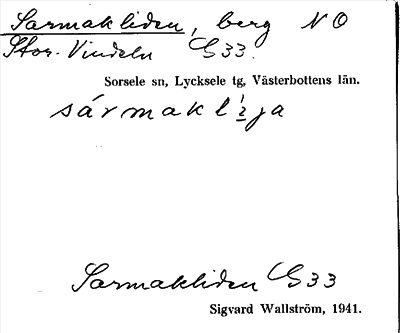 Sarmakliden, berg NO
Stor-Vindeln G33.
Sorsele sn, Lycksele tg, Västerbottens län.
Sarmakliden G33
Sigvard Wallström, 1941.